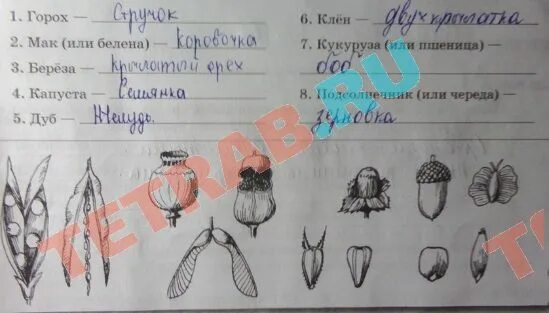 1. Горох — Стручок
2. Мак (или белена) — Коровочка
3. Берёза — Крылатый орех
4. Капуста — Семянка
5. Дуб — Желудь.
6. Клён — двухкрылатка
7. Кукуруза (или пшеница) —
боб
8. Подсолнечник (или череда) —
зерновка
TETRAB.RU